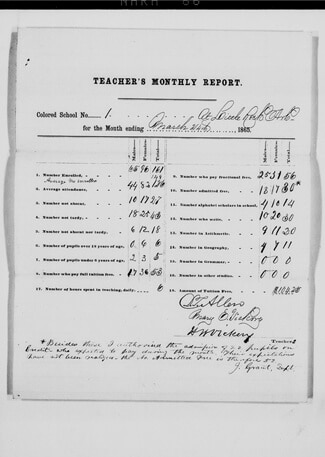 TEACHER'S MONTHLY REPORT.
Colored School No. 1. at Little Rock Ark
for the Month ending March 24th 1865.
Males. Females. Total. Males. Females. Total.
1. Number Enrolled, 65 96 161 9. Number who pay fractional fees, 25 31 56
2. Average attendance, 44 82 126 10. Number admitted free, 13 17 30*
3. Number not absent, 10 17 27 11. Number alphabet scholars in school, 4 10 14
4. Number not tardy, 12. Number who write, 10 20 30
5. Number not absent or tardy, 6 12 18 13. Number in Arithmetic, 9 11 20
6. Number of pupils over 16 years of age, 0 6 6 14. Number in Geography, 4 7 11
7. Number of pupils under 6 years of age, 2 3 5 15. Number in Grammar, 0 0 0
8. Number who pay full tuition fee, 17 36 53 16. Number in other studies, 0 0 0
17. Number of hours spent in teaching daily, 6 18. Amount of Tuition Fees,
Allen
Mary E.
Teachers
* Besides these I authorized the admission of 22 pupils on
Credit who expected to pay during the month. Their expectations
have not been realized. the No. Admitted Free is therefore 52
J. Grant, Supt.